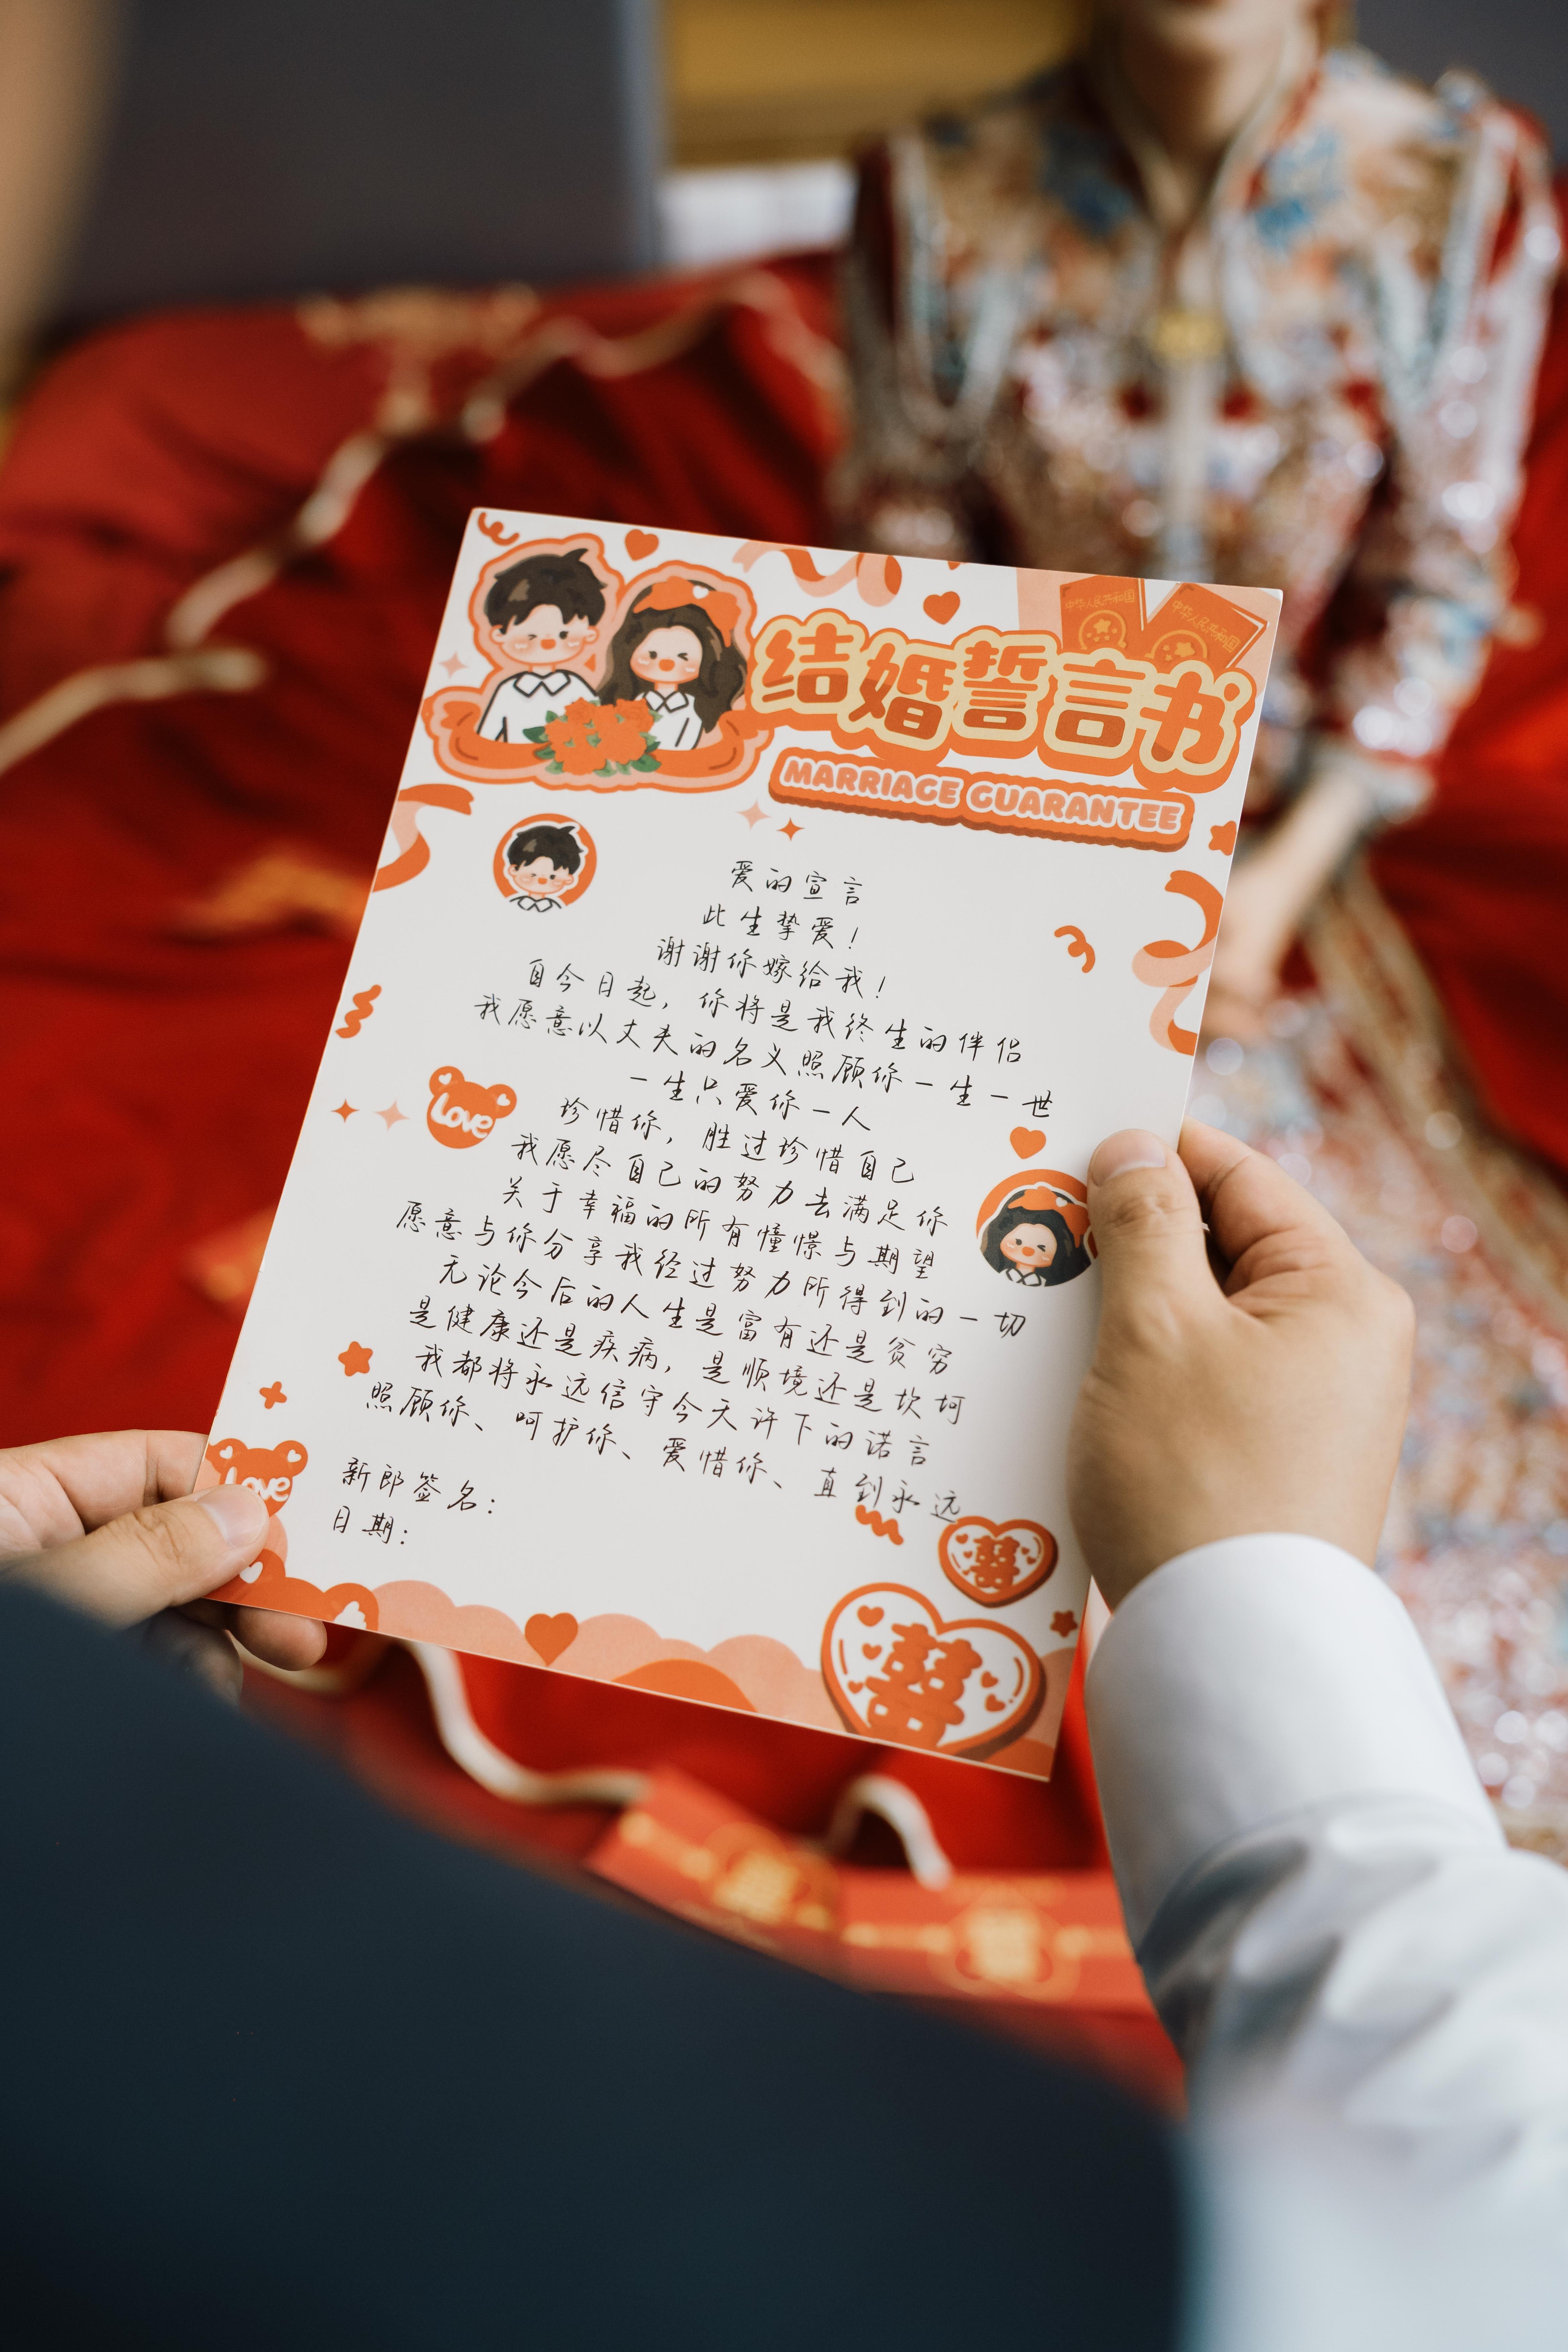 中华人民共和国
中华人民共和国
结婚誓言书
MARRIAGE GUARANTEE
爱的宣言
此生挚爱！
谢谢你嫁给我！
自今日起，你将是我终生的伴侣
我愿意以丈夫的名义照顾你一生一世
一生只爱你一人
珍惜你，胜过珍惜自己
我愿尽自己的努力去满足你
关于幸福的所有憧憬与期望
愿意与你分享我经过努力所得到的一切
无论今后的人生是富有还是贫穷
是健康还是疾病，是顺境还是坎坷
我都将永远信守今天许下的诺言
照顾你、呵护你、爱惜你、直到永远
新郎签名：
日期：
Love
Love
囍
囍